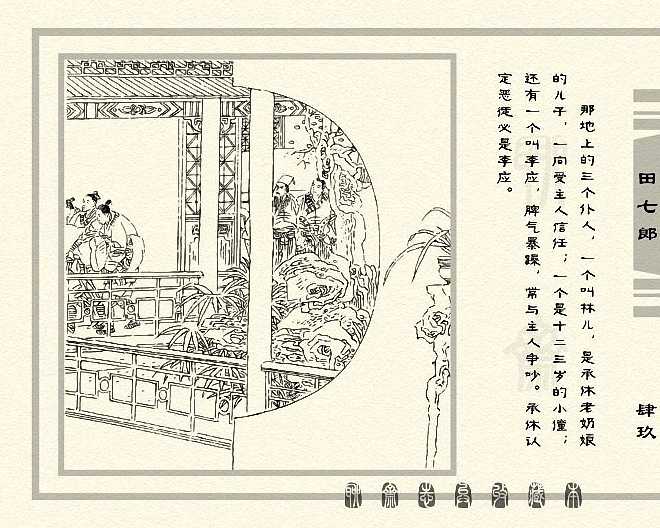 田七郎
肆玖
那地上的三个仆人，一个叫林儿，是承休老奶娘
的儿子，一向受主人信任；一个是十二三岁的小僮；
还有一个叫李应，脾气暴躁，常与主人争吵。承休认
定恶徒必是李应。
聊斋志异收藏本